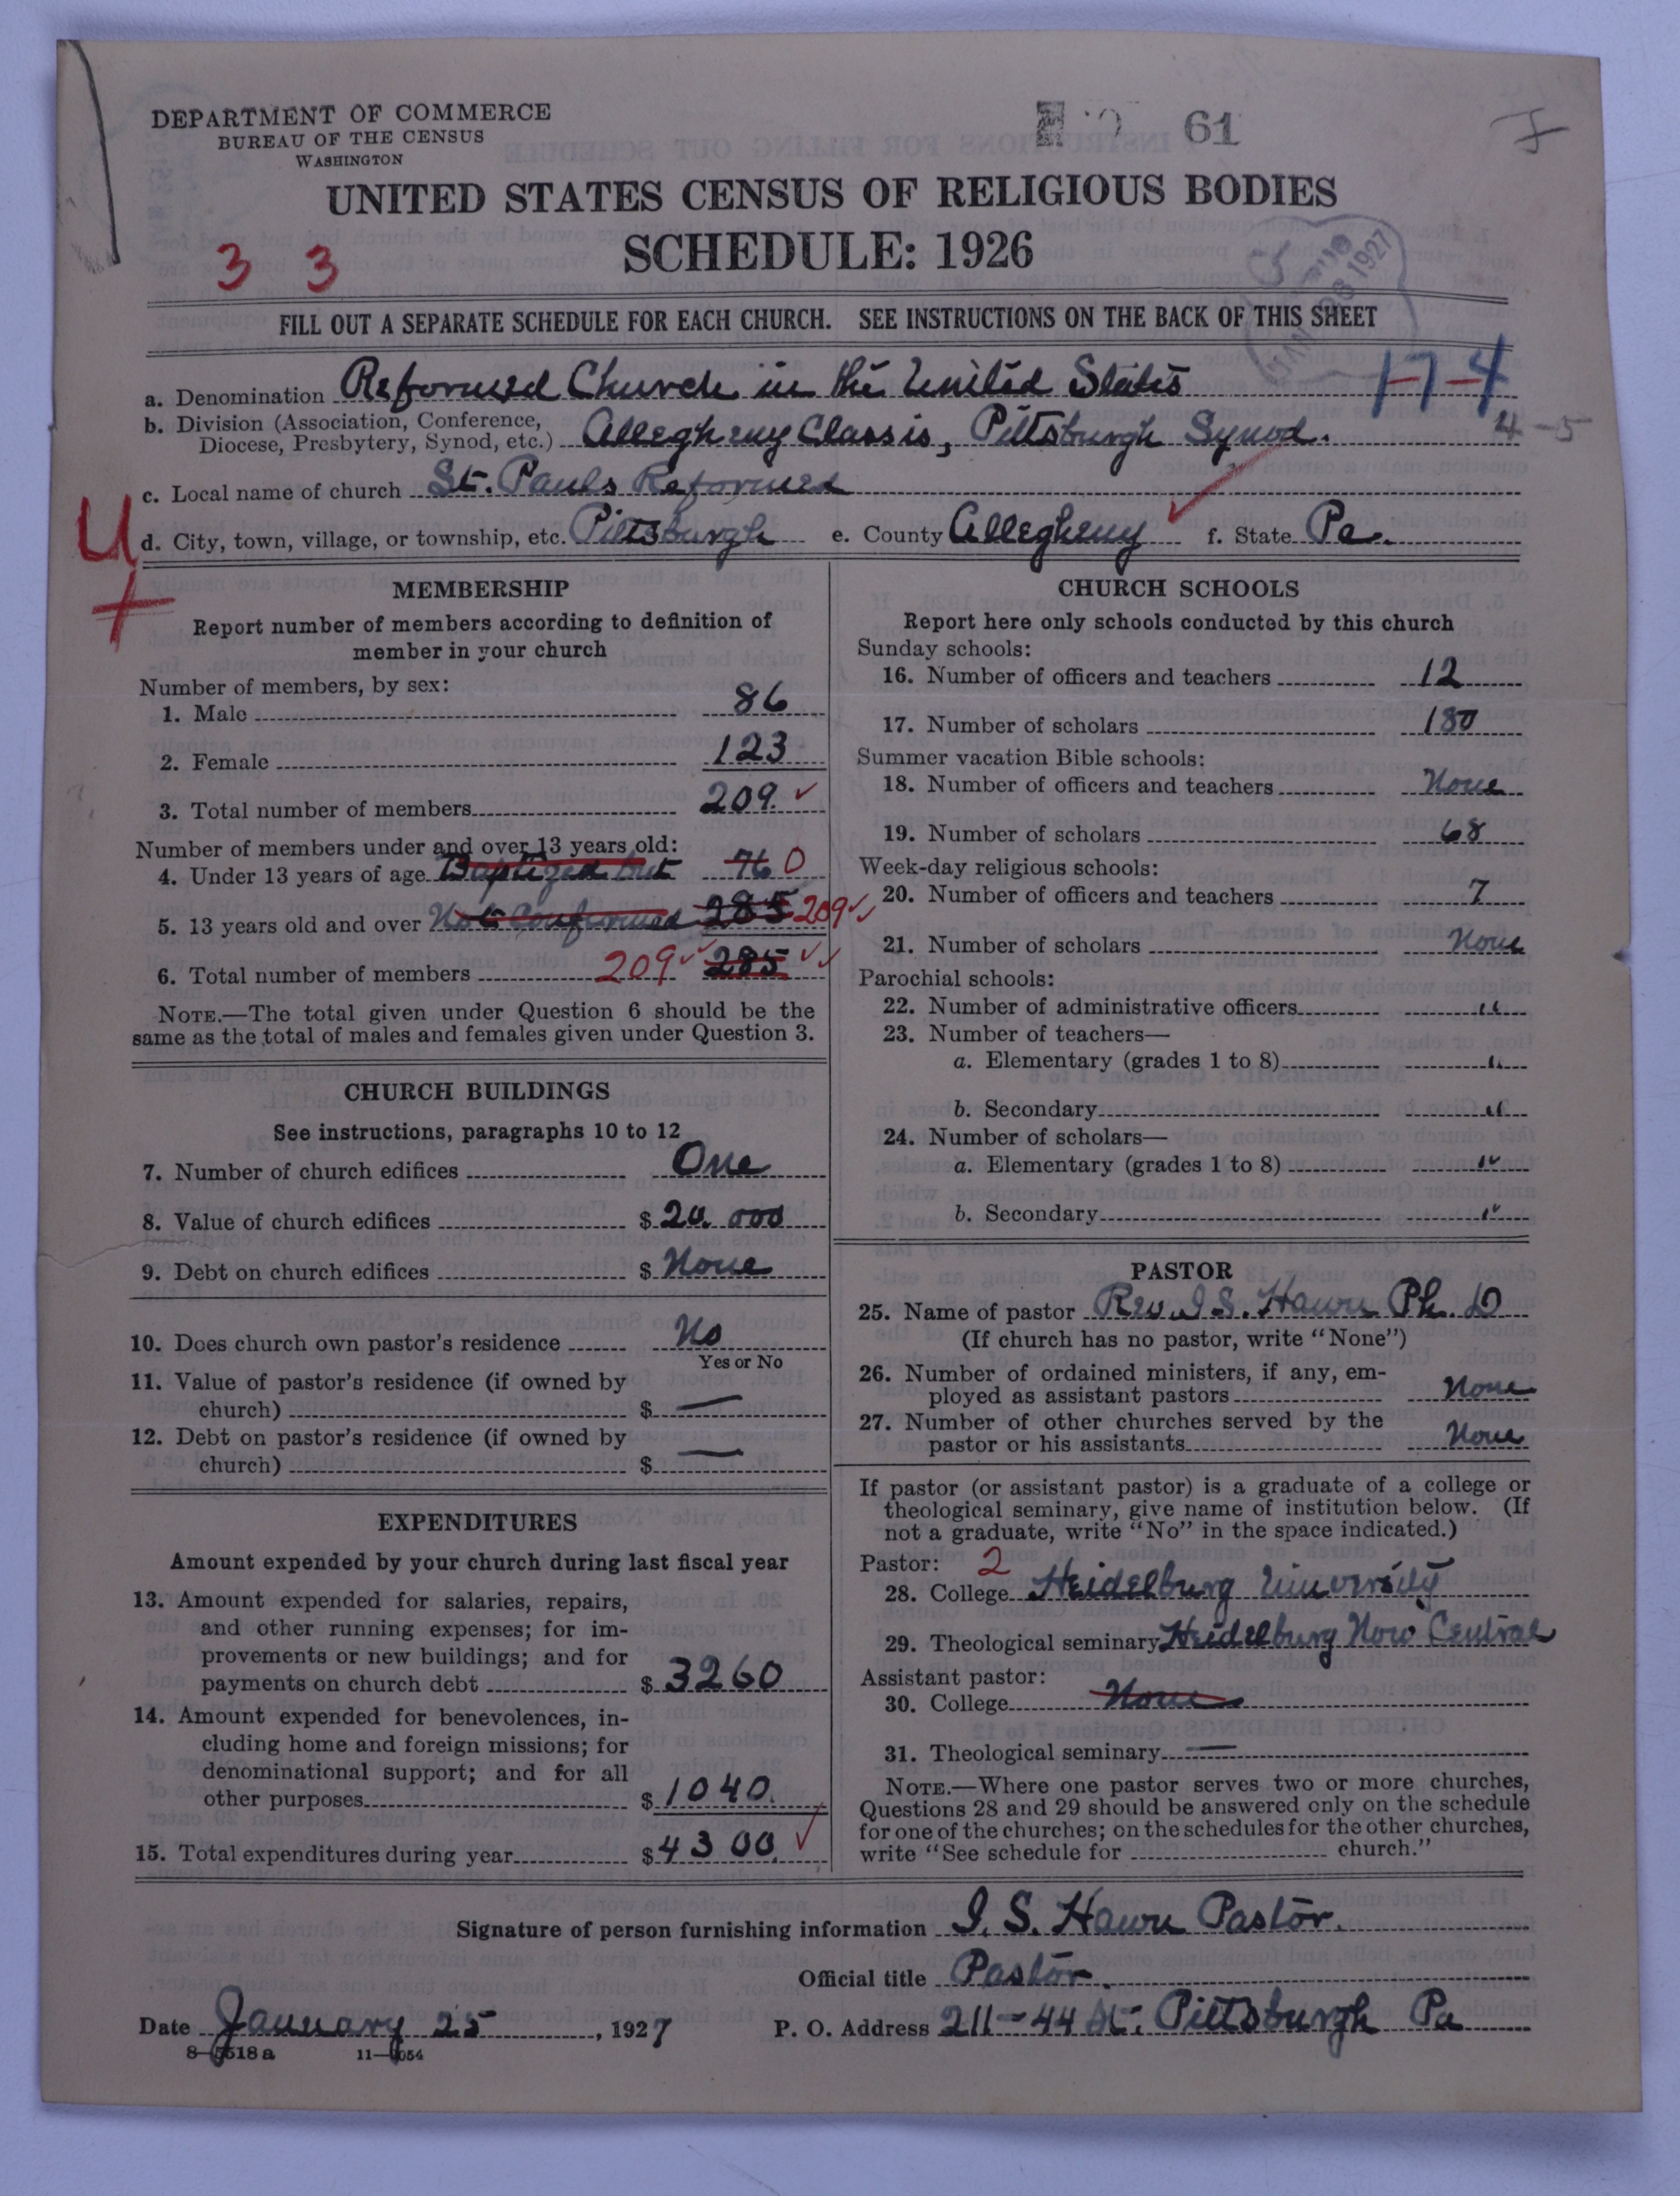 DEPARTMENT OF COMMERCE
BUREAU OF THE CENSUS
WASHINGTON
61
UNITED STATES CENSUS OF RELIGIOUS BODIES
SCHEDULE: 1926
3 3
FILL OUT A SEPARATE SCHEDULE FOR EACH CHURCH. SEE INSTRUCTIONS ON THE BACK OF THIS SHEET
a. Denomination Reformed Church in the United States 17-4
b. Division (Association, Conference, Diocese, Presbytery, Synod, etc.) Allegheny Classis, Pittsburgh Synod. 4-5
c. Local name of church St. Pauls Reformed
d. City, town, village, or township, etc. Pittsburgh e. County Allegheny f. State Pa.
MEMBERSHIP
Report number of members according to definition of
member in your church
Number of members, by sex:
1. Male 86
2. Female 123
3. Total number of members 209.
Number of members under and over 13 years old:
4. Under 13 years of age Baptized but 76 0
5. 13 years old and over Not Confirmed 285 209
6. Total number of members 209 285
NOTE.—The total given under Question 6 should be the
same as the total of males and females given under Question 3.
CHURCH BUILDINGS
See instructions, paragraphs 10 to 12
7. Number of church edifices One
8. Value of church edifices $ 20.000
9. Debt on church edifices $ None
10. Does church own pastor's residence No
Yes or No
11. Value of pastor's residence (if owned by
church) $ —
12. Debt on pastor's residence (if owned by
church) $ —
EXPENDITURES
Amount expended by your church during last fiscal year
13. Amount expended for salaries, repairs,
and other running expenses; for im-
provements or new buildings; and for
payments on church debt $ 3260
14. Amount expended for benevolences, in-
cluding home and foreign missions; for
denominational support; and for all
other purposes $ 1040.
15. Total expenditures during year $ 4300.
CHURCH SCHOOLS
Report here only schools conducted by this church
Sunday schools:
16. Number of officers and teachers 12
17. Number of scholars 180
Summer vacation Bible schools:
18. Number of officers and teachers None
19. Number of scholars 68
Week-day religious schools:
20. Number of officers and teachers 7
21. Number of scholars None
Parochial schools:
22. Number of administrative officers "
23. Number of teachers—
a. Elementary (grades 1 to 8) "
b. Secondary "
24. Number of scholars—
a. Elementary (grades 1 to 8) "
b. Secondary "
PASTOR
25. Name of pastor Rev. I. S. Hawn Ph. D
(If church has no pastor, write "None")
26. Number of ordained ministers, if any, em-
ployed as assistant pastors None
27. Number of other churches served by the
pastor or his assistants None
If pastor (or assistant pastor) is a graduate of a college or
theological seminary, give name of institution below. (If
not a graduate, write "No" in the space indicated.)
Pastor: 2
28. College Heidelburg University
29. Theological seminary Heidelburg Now Central
Assistant pastor:
30. College None
31. Theological seminary —
NOTE.—Where one pastor serves two or more churches,
Questions 28 and 29 should be answered only on the schedule
for one of the churches; on the schedules for the other churches,
write "See schedule for church."
Signature of person furnishing information I. S. Hawn Pastor.
Official title Pastor.
Date January 25, 1927 P. O. Address 211-44 St. Pittsburgh Pa